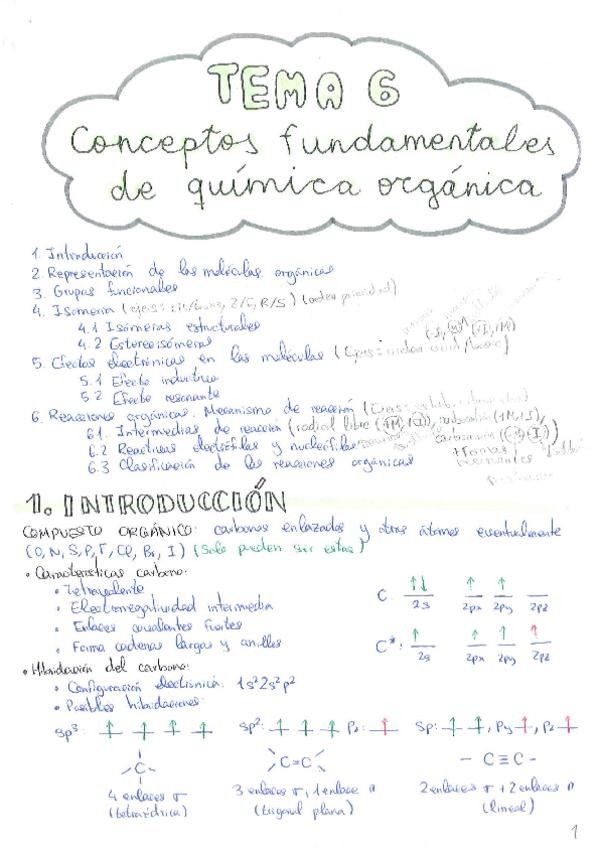 TEMA 6
Conceptos fundamentales
de química orgánica
1. Introducción
2. Representación de las moléculas orgánicas
3. Grupos funcionales
4. Isomería (ejes: cis/trans, Z/E, R/S) (orden prioridad)
4.1 Isómeros estructurales
4.2 Estereoisómeros
5. Efectos electrónicos en las moléculas (Ejes: orden acid/basic)
5.1 Efecto inductivo
5.2 Efecto resonante
6. Reacciones orgánicas. Mecanismo de reacción
6.1. Intermedios de reacción (radical libre (+M, +I), carbocatión (+M, +I),
carbanión (-M, -I))
6.2 Reactivos electrófilos y nucleófilos
+ formas
resonantes
6.3 Clasificación de las reacciones orgánicas
1. INTRODUCCIÓN
COMPUESTO ORGÁNICO: carbonos enlazados y otros átomos eventualmente
(O, N, S, P, F, Cl, Br, I) (Solo pueden ser estos)
• Características carbono:
• Tetravalente
• Electronegatividad intermedia
• Enlaces covalentes fuertes
• Forma cadenas largas y anillos
C ↑↓ ↑ ↑
2s 2px 2py 2pz
C*: ↑ ↑ ↑ ↑
2s 2px 2py 2pz
• Hibridación del carbono:
• Configuración electrónica: 1s² 2s² p²
• Posibles hibridaciones:
sp³: ↑ ↑ ↑ ↑ sp²: ↑ ↑ ↑ Pz: ↑ sp: ↑ ↑, Py ↑, Pz ↑
C C=C - C≡C -
4 enlaces σ 3 enlaces σ, 1 enlace π 2 enlaces σ + 2 enlaces π
(tetraédrica) (trigonal plana) (lineal)
1